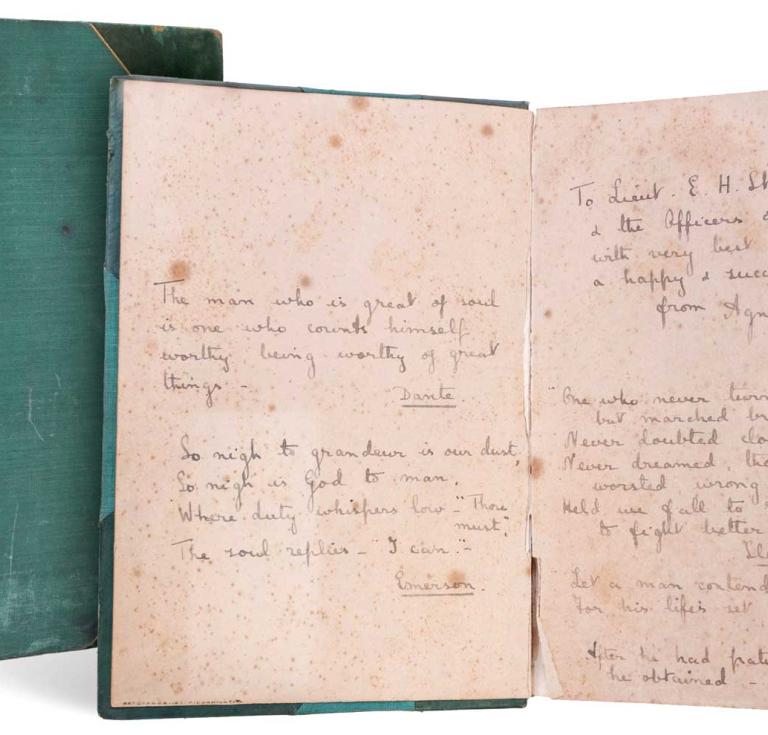 The man who is great of soul
is one who counts himself
worthy being worthy of great
things -
Dante.
So nigh to grandeur is our dust,
So nigh is God to man,
Where duty whispers low - "Thou
must,"
The soul replies - "I can." -
Emerson.
To Lieut. E. H. Sh
& the Officers
with very best
a happy & succ
from Agn
"One who never turn
but marched br
Never doubted clo
Never dreamed, tho
worsted, wrong
Held we fall to
to fight better
Let a man contend
For his life's set
After he had pati
he obtained -